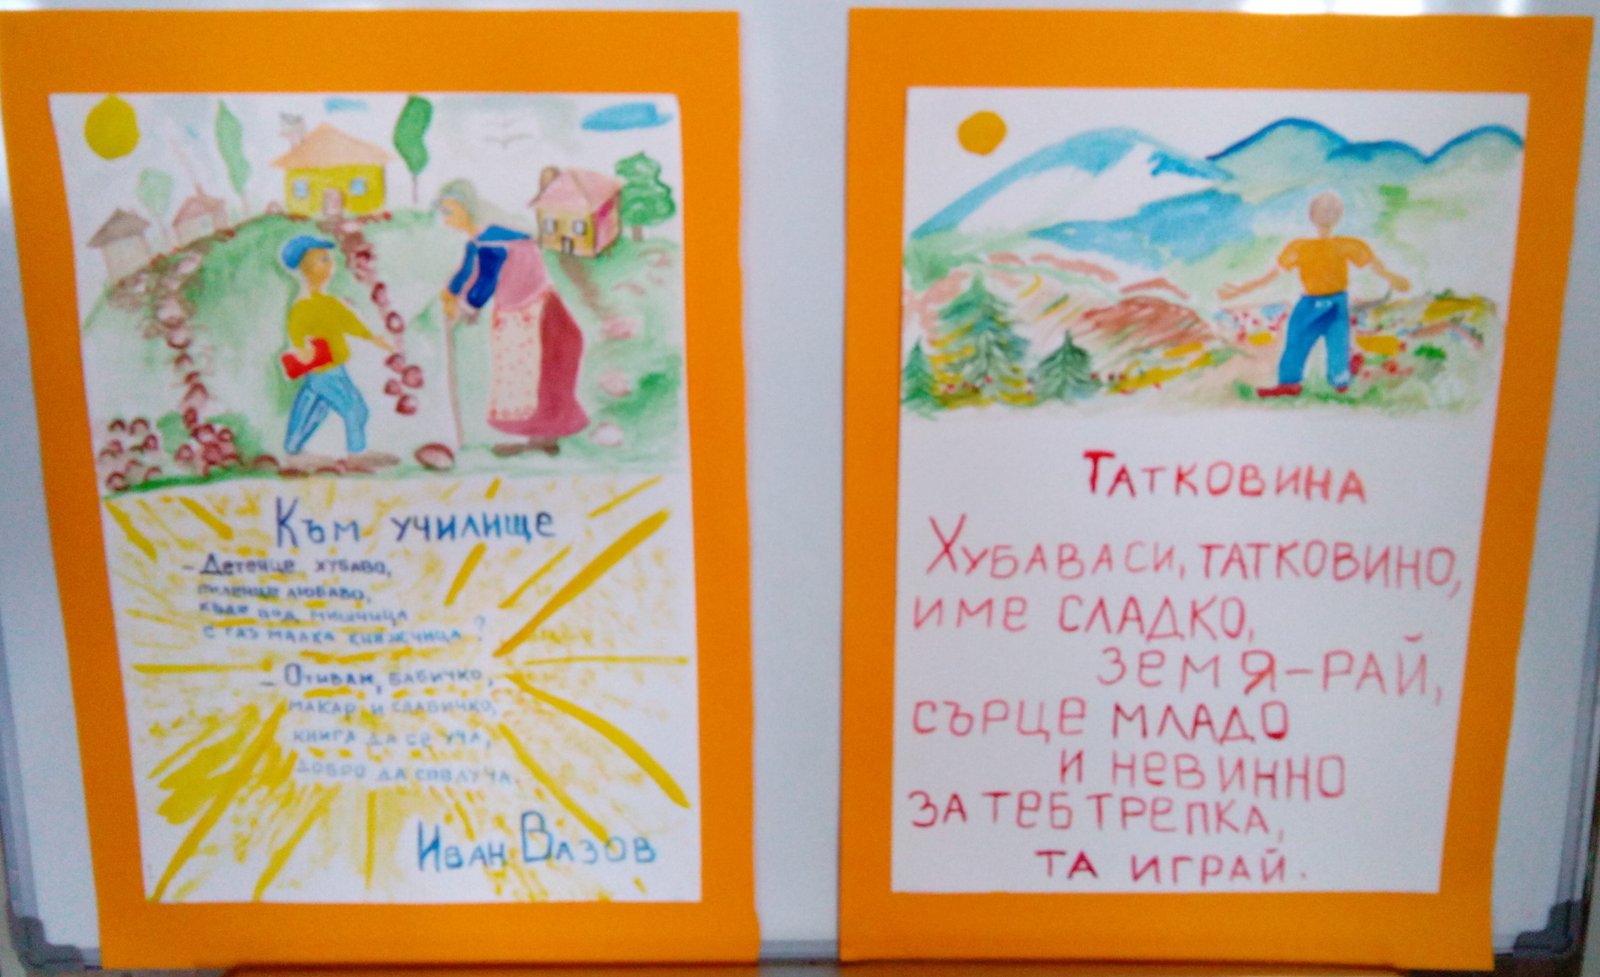 Към училище
– Детенце хубаво,
пиленце любаво,
къде под мишница
с таз малка книжчица?
– Отивам, бабичко,
макар и слабичко,
книга да се уча,
добро да сполуча.
Иван Вазов
Татковина
Хубава си, татковино,
име сладко,
земя-рай,
сърце младо
и невинно
за теб трепка,
та играй.